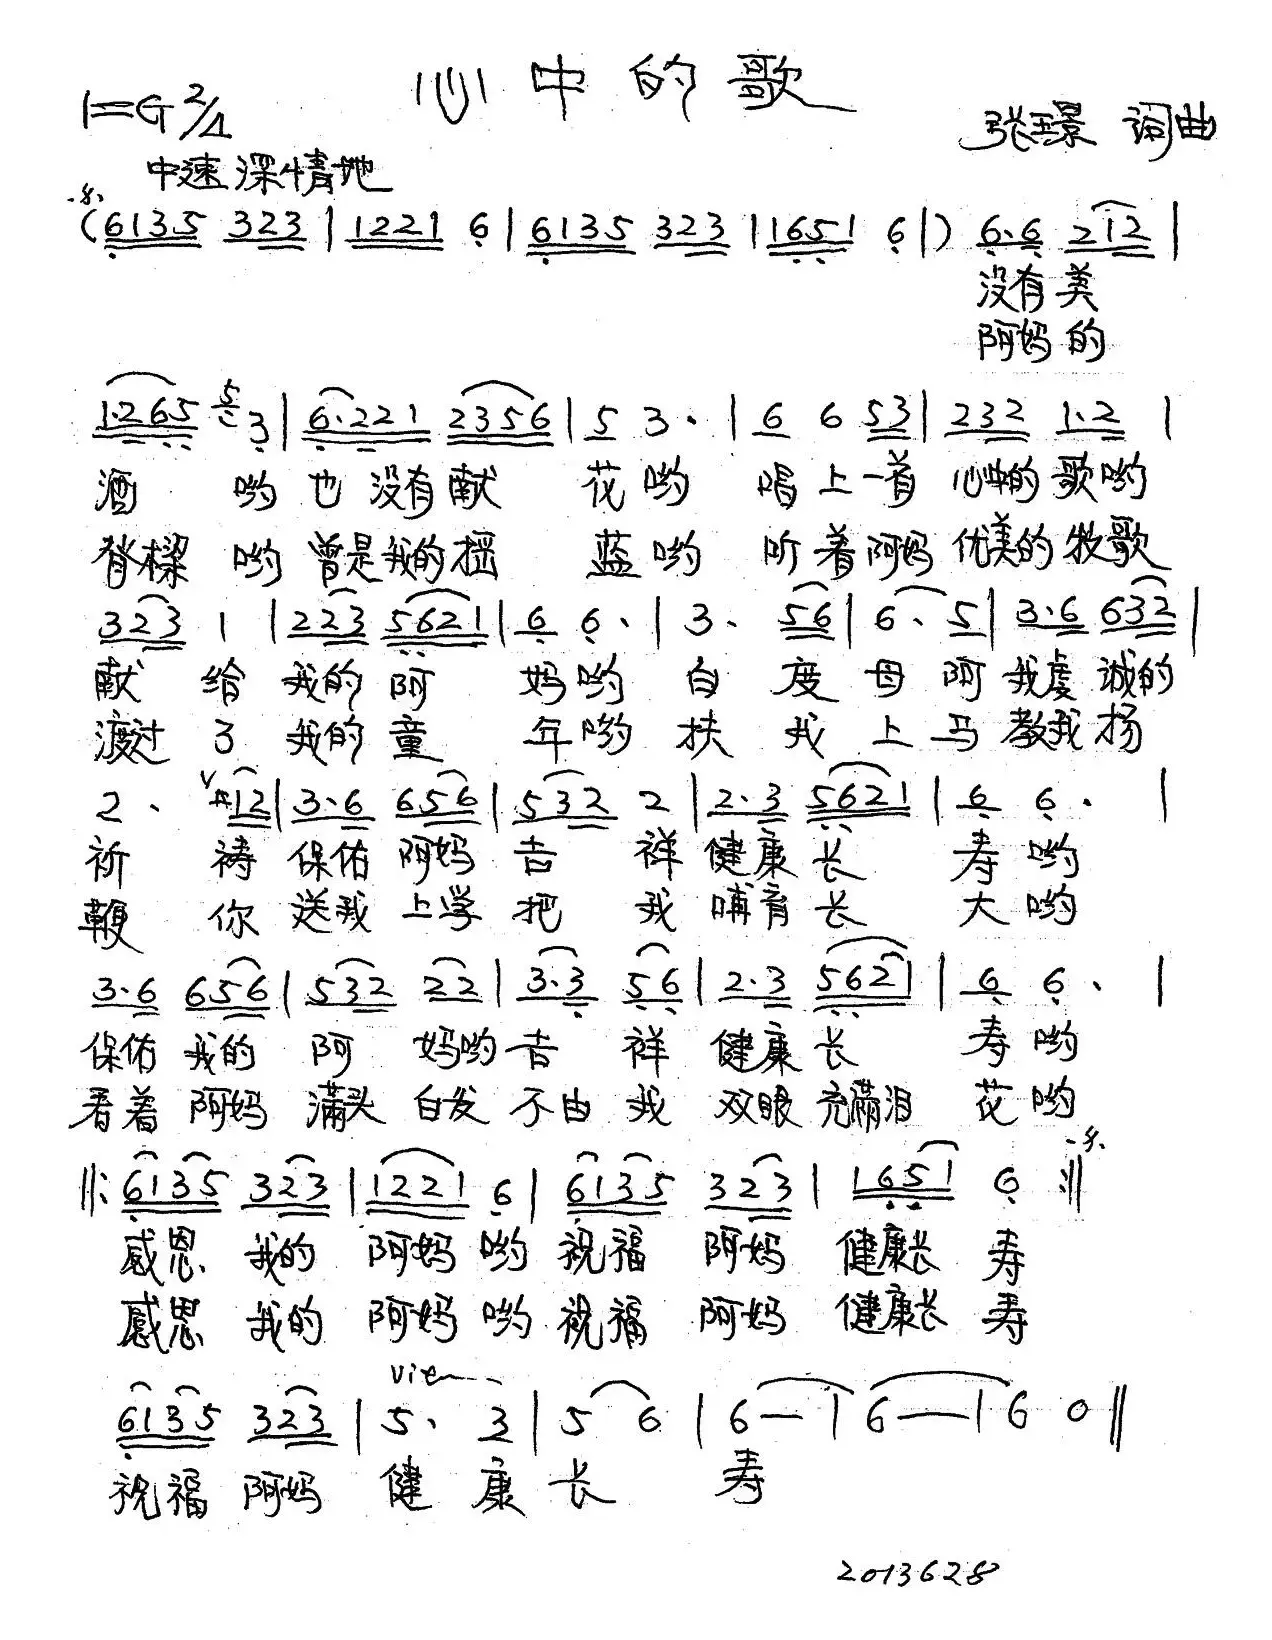 心中的歌
1=G 2/4
张璟 词曲
中速 深情地
(6135 323 | 1221 6 | 6135 323 | 1651 6 |) 6·6 212 |
没有美
阿妈的
1·265 5 3 | 6·221 2356 | 5 3· | 6 6 53 | 232 1·2 |
酒 哟 也 没有献 花 哟 唱 上 一首 心中的 歌哟
脊樑 哟 曾是我的摇 蓝 哟 听 着 阿妈 优美的 牧歌
323 1 | 223 5621 | 6 6· | 3· 56 | 6· 5 | 3·6 632 |
献 给 我的 阿 妈哟 白 度 母 阿 我虔 诚的
渡过 了 我的 童 年哟 扶 我 上 马 教我 扬
2· V #12 | 3·6 656 | 532 2 | 2·3 5621 | 6 6· |
祈 祷 保佑 阿妈 吉 祥 健康 长 寿 哟
鞭 你 送我 上学 把 我 哺育 长 大 哟
3·6 656 | 532 22 | 3·3 56 | 2·3 5621 | 6 6· |
保佑 我的 阿 妈哟 吉 祥 健康 长 寿 哟
看着 阿妈 满头 白发 不由 我 双眼 充满泪 花 哟
‖: 6135 323 | 1221 6 | 6135 323 | 1651 6 :‖
感恩 我的 阿妈 哟 祝福 阿妈 健康长 寿
感恩 我的 阿妈 哟 祝福 阿妈 健康长 寿
6135 323 | 5· 3 | 5 6 | 6— | 6— | 6 0 ‖
祝福 阿妈 健 康 长 寿
2013628